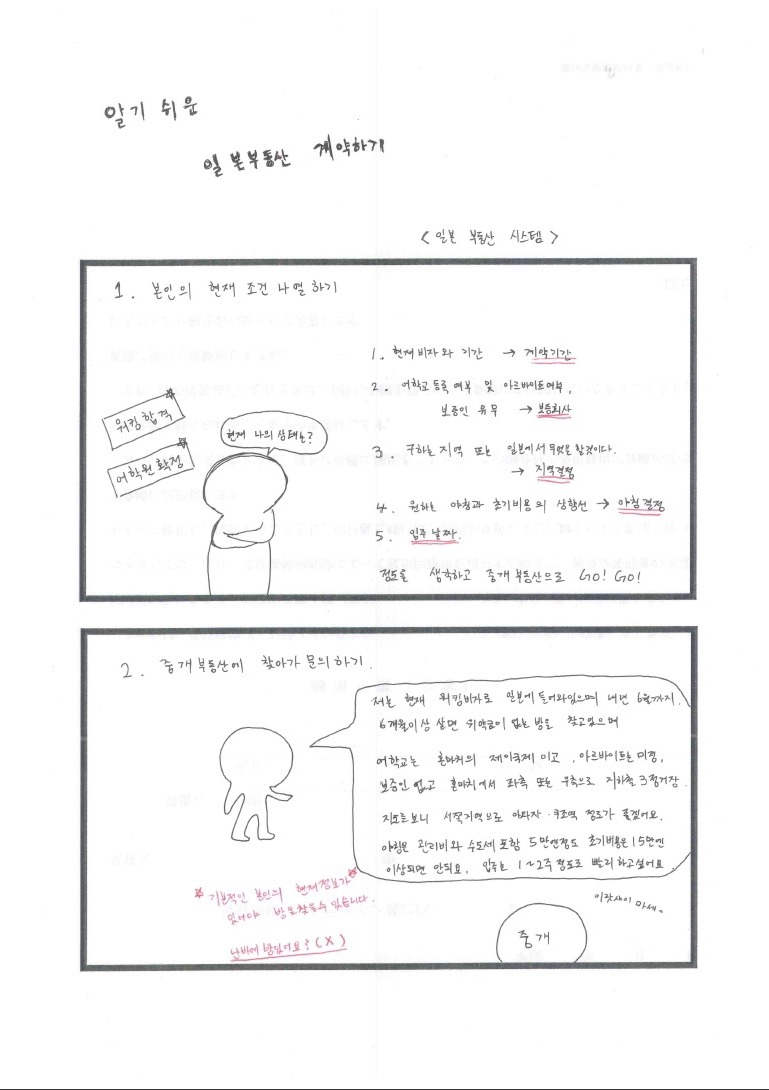 알기 쉬운
일본부동산 계약하기
< 일본 부동산 시스템 >
1. 본인의 현재 조건 나열하기
워킹합격
어학원확정
현재 나의 상태는?
1. 현재비자와 기간 → 계약기간
2. 어학교등록여부 및 아르바이트여부,
보증인 유무 → 보증회사
3. 구하는 지역 또는 일본에서 무엇을 할것이다.
→ 지역결정
4. 원하는 야칭과 초기비용의 상한선 → 야칭결정
5. 입주날짜.
정도를 생각하고 중개부동산으로 GO! GO!
2. 중개부동산에 찾아가 문의하기.
저는 현재 워킹비자로 일본에 들어와있으며 내년 6월까지.
6개월이상 살면 위약금이 없는방을 찾고있으며
어학교는 혼마치의 제이국제 이고, 아르바이트는 미정,
보증인 없고 혼마치에서 좌측 또는 우측으로 지하철 3정거장.
지도를보니 서쪽지역으로 아와자·쿠조역 정도가 좋겠어요.
야칭은 관리비와 수도세 포함 5만엔정도 초기비용은 15만엔
이상되면 안되요. 입주는 1~2주 정도로 빨리하고싶어요.
기본적인 본인의 현재정보가
있어야 방을찾을수있습니다.
난바에방있어요? (X)
이랏샤이마세.
중개